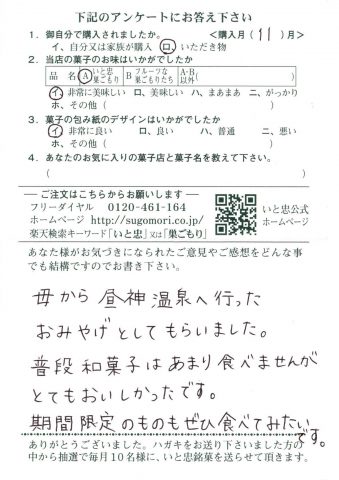 下記のアンケートにお答え下さい
1. 御自分で購入されましたか。 <購入月(11)月>
イ、自分又は家族が購入 ロ、いただき物
2. 当店の菓子のお味はいかがでしたか
品名 A いと忠巣ごもり B フルーツな巣ごもりたち A・B以外( )
イ、非常に美味しい ロ、美味しい ハ、まあまあ ニ、がっかり
ホ、その他( )
3. 菓子の包み紙のデザインはいかがでしたか
イ、非常に良い ロ、良い ハ、普通 ニ、悪い
ホ、その他( )
4. あなたのお気に入りの菓子店と菓子名を教えて下さい。
( )
ご注文はこちらからお願い致します
フリーダイヤル 0120-461-164
ホームページ http://sugomori.co.jp/
楽天検索キーワード「いと忠」又は「巣ごもり」
いと忠公式
ホームページ
あなた様がお気づきになられたご意見やご感想をどんな事
でも結構ですのでお書き下さい。
母から昼神温泉へ行った
おみやげとしてもらいました。
普段和菓子はあまり食べませんが
とてもおいしかったです。
期間限定のものもぜひ食べてみたい
です。
ありがとうございました。ハガキをお送り下さいました方の
中から抽選で毎月10名様に、いと忠銘菓を送らせて頂きます。